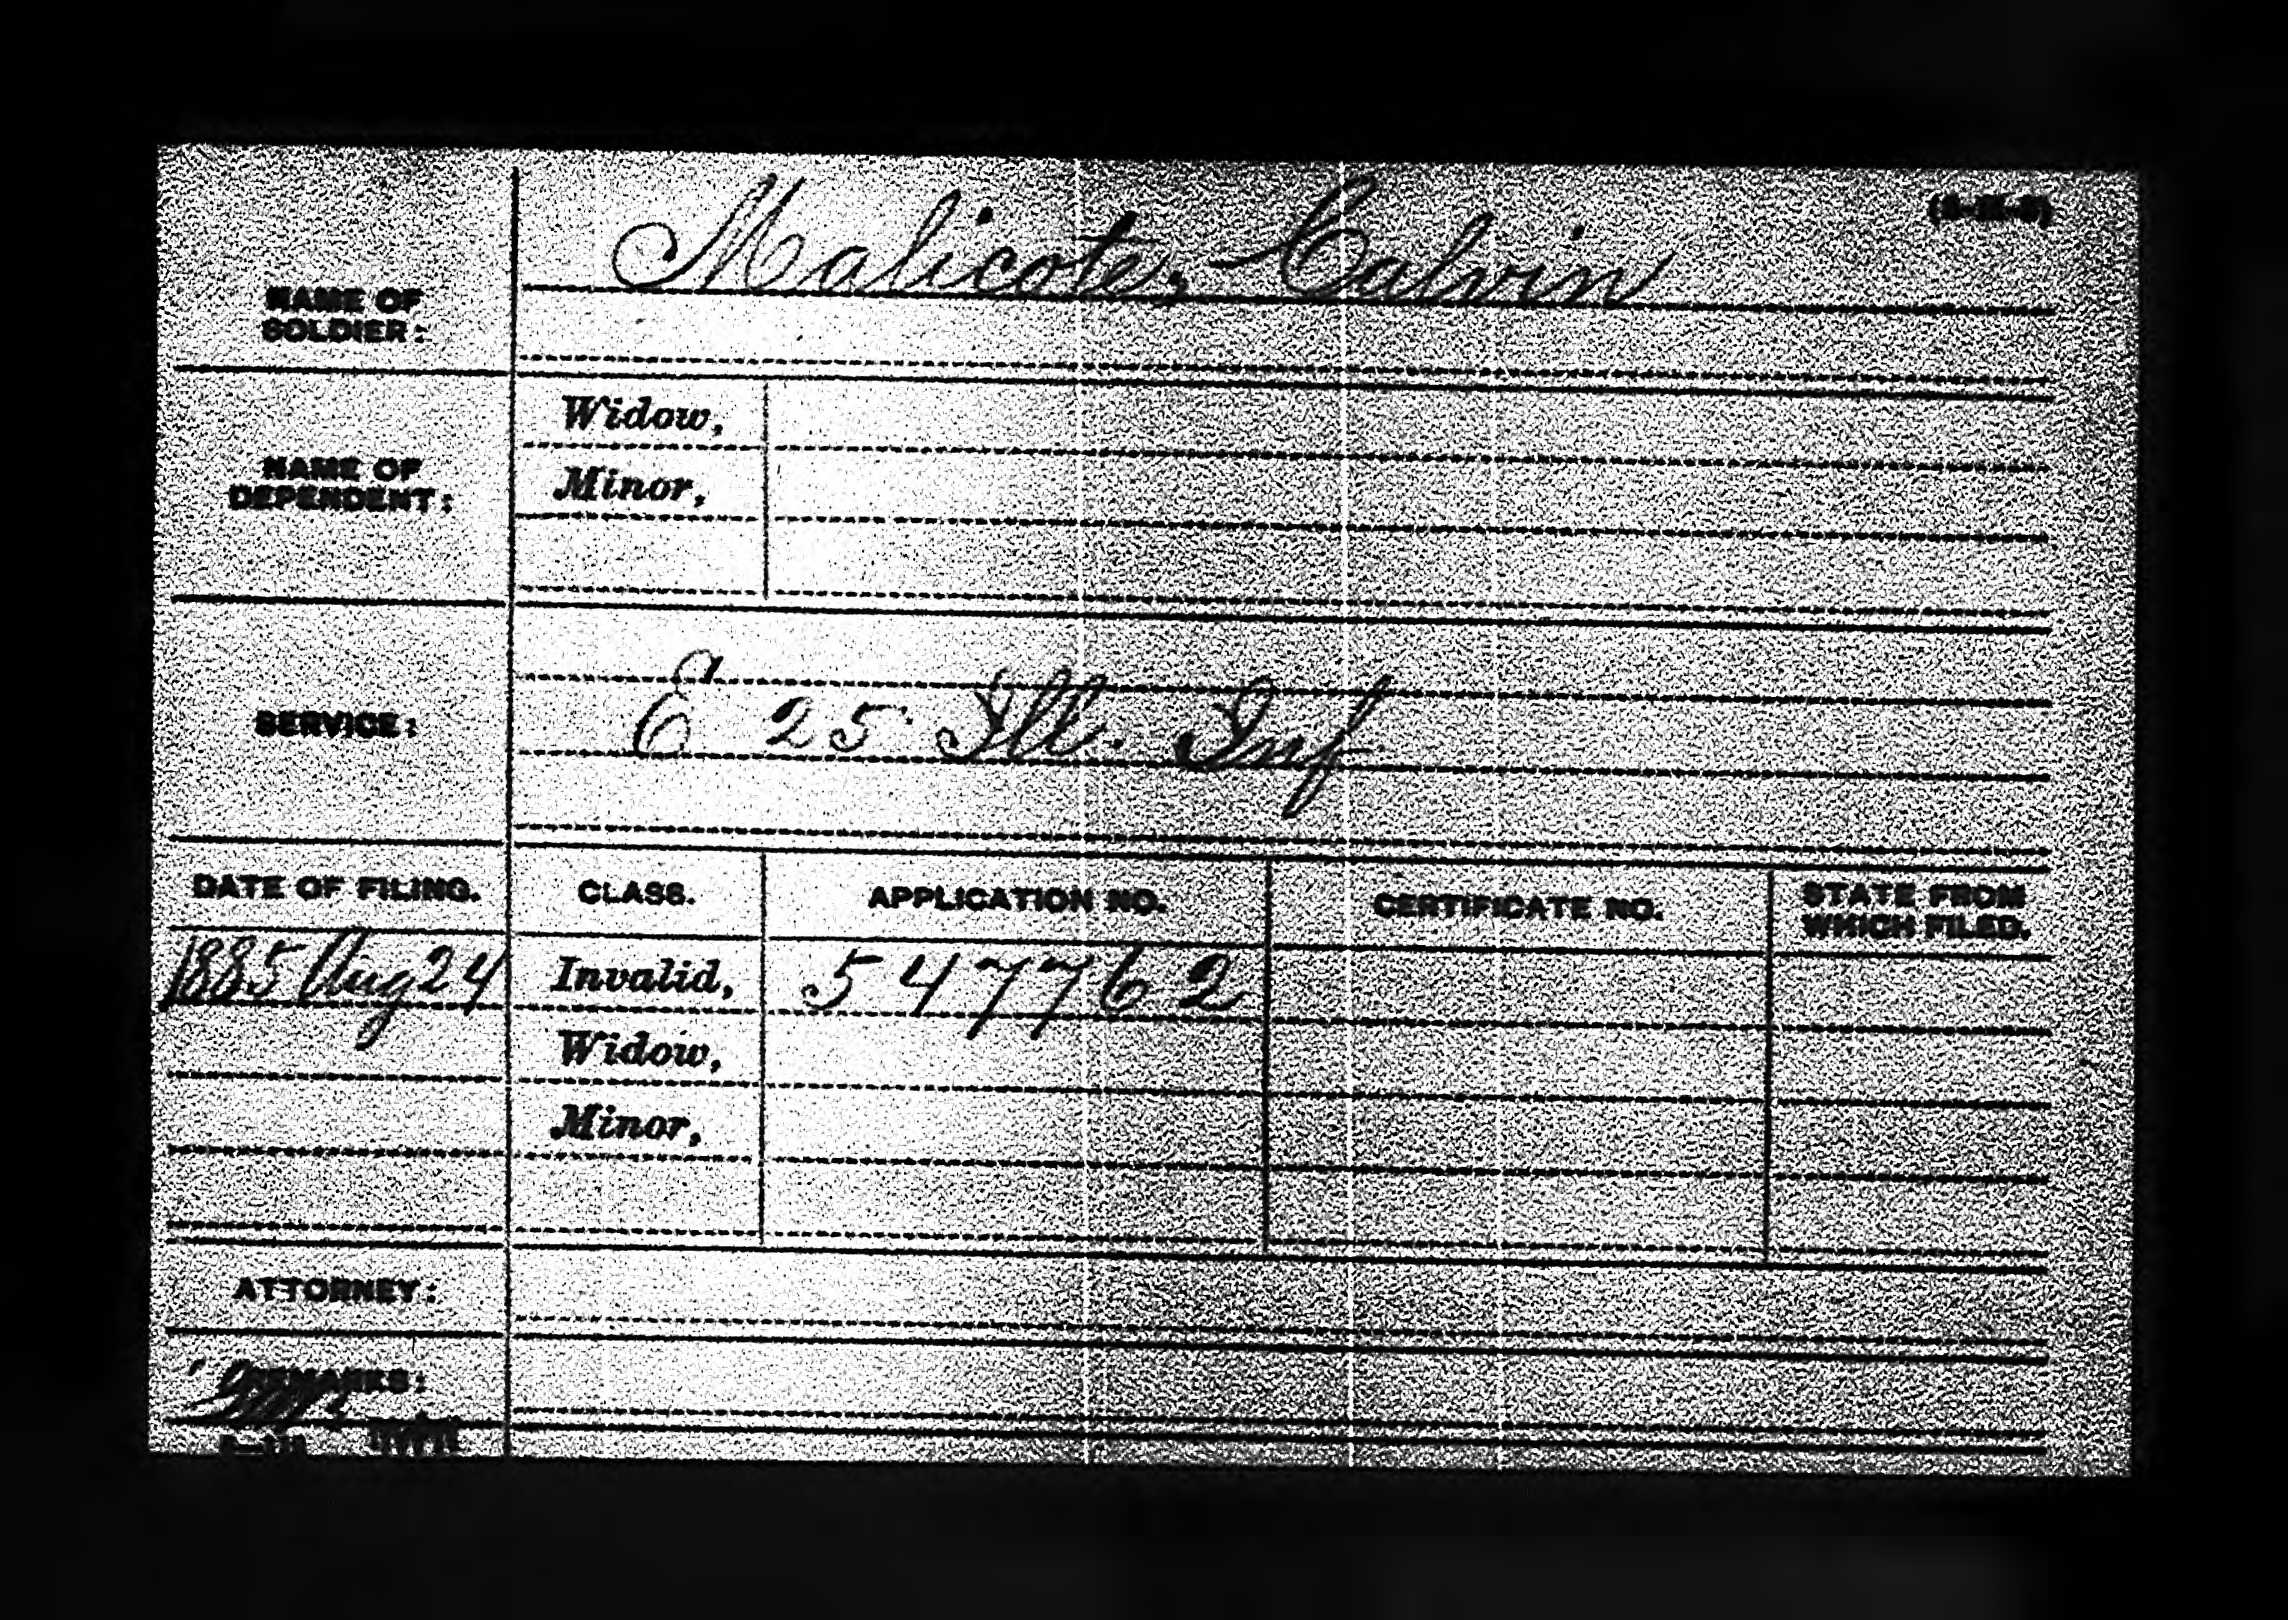 Malicote, Calvin
NAME OF
SOLDIER:
NAME OF
DEPENDENT:
Widow,
Minor,
SERVICE:
E 25 Ill. Inf
DATE OF FILING. CLASS. APPLICATION NO. CERTIFICATE NO. STATE FROM
WHICH FILED.
1885 Aug 24 Invalid, 547762
Widow,
Minor,
ATTORNEY:
REMARKS: